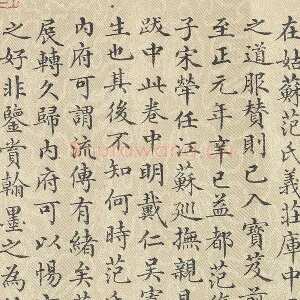 在姑蘇范氏義莊庫中
之道服贊則已入寶笈
至正元年辛巳益都范
子宋犖任江蘇巡撫親見
跋中此卷中明戴仁吳寬
生也其後不知何時范氏
內府可謂流傳有緒矣
展轉久歸內府可以惕
之好非鑒賞翰墨之為